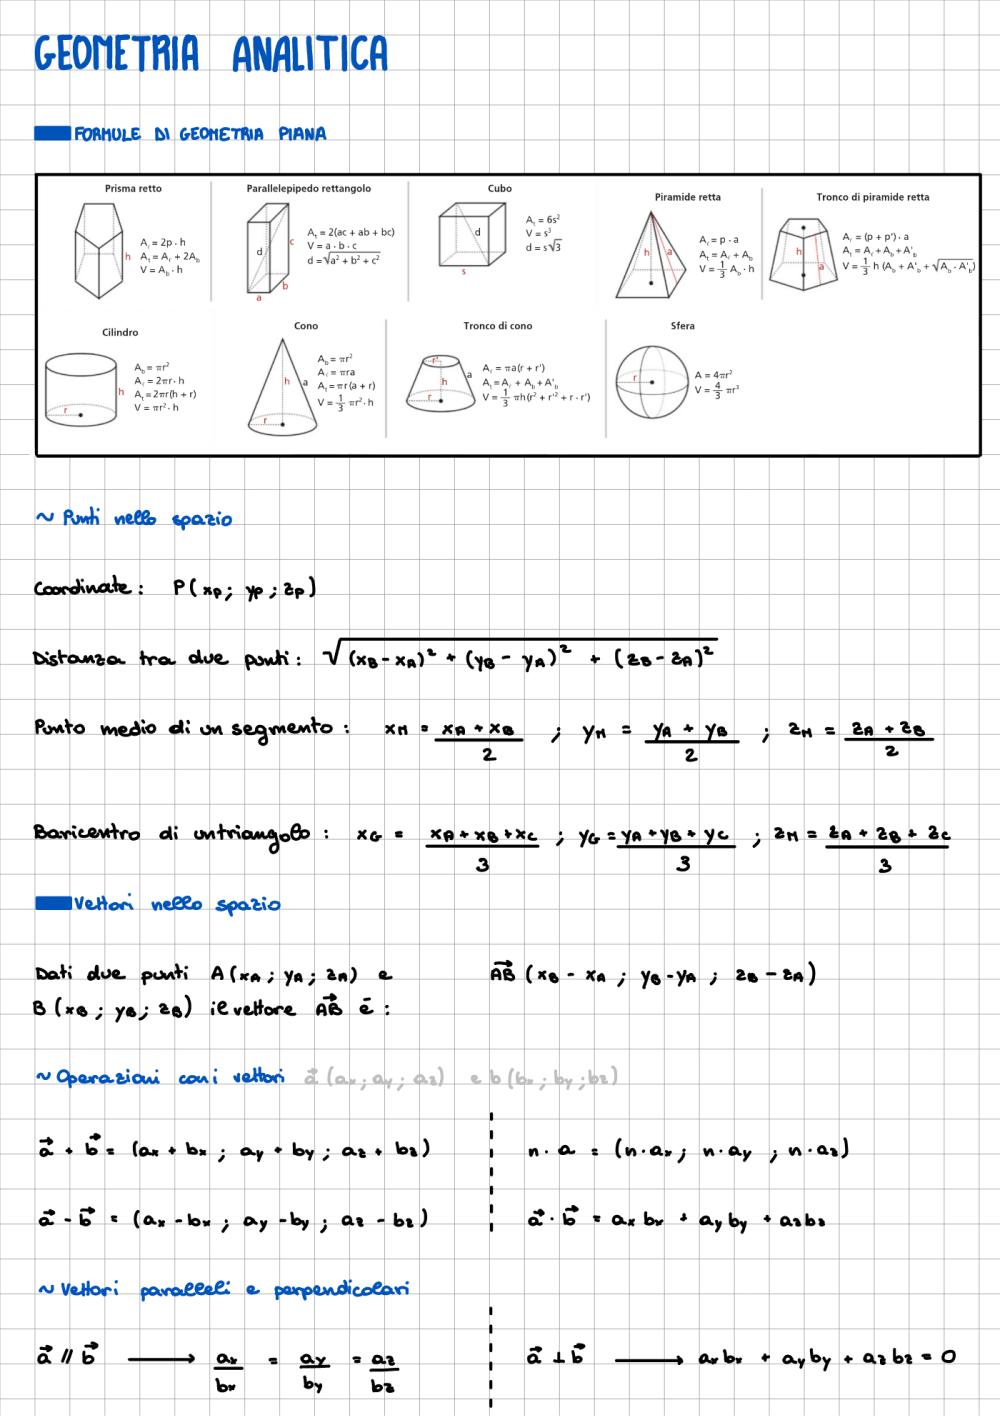 GEOMETRIA ANALITICA
FORMULE DI GEOMETRIA PIANA
Prisma retto
h
Aₗ = 2p · h
Aₜ = Aₗ + 2A_b
V = A_b · h
Parallelepipedo rettangolo
d
c
b
a
Aₜ = 2(ac + ab + bc)
V = a · b · c
d = √(a² + b² + c²)
Cubo
d
s
Aₜ = 6s²
V = s³
d = s√3
Piramide retta
h
a
Aₗ = p · a
Aₜ = Aₗ + A_b
V = 1/3 A_b · h
Tronco di piramide retta
h
a
Aₗ = (p + p') · a
Aₜ = Aₗ + A_b + A'_b
V = 1/3 h (A_b + A'_b + √(A_b · A'_b))
Cilindro
h
r
A_b = πr²
Aₗ = 2πr · h
Aₜ = 2πr(h + r)
V = πr² · h
Cono
h
a
r
A_b = πr²
Aₗ = πra
Aₜ = πr(a + r)
V = 1/3 πr² · h
Tronco di cono
r'
h
a
r
Aₗ = πa(r + r')
Aₜ = Aₗ + A_b + A'_b
V = 1/3 πh(r² + r'² + r · r')
Sfera
r
A = 4πr²
V = 4/3 πr³
~ Punti nello spazio
Coordinate: P(xP; yP; zP)
Distanza tra due punti: √((xB - xA)² + (yB - yA)² + (zB - zA)²)
Punto medio di un segmento: xM = (xA + xB)/2 ; yM = (yA + yB)/2 ; zM = (zA + zB)/2
Baricentro di un triangolo: xG = (xA + xB + xC)/3 ; yG = (yA + yB + yC)/3 ; zM = (zA + zB + zC)/3
Vettori nello spazio
Dati due punti A(xA; yA; zA) e
B(xB; yB; zB) il vettore AB⃗ è:
AB⃗ (xB - xA ; yB - yA ; zB - zA)
~ Operazioni con i vettori a⃗ (ax; ay; az) e b (bx; by; bz)
a⃗ + b⃗ = (ax + bx ; ay + by ; az + bz)
n · a = (n · ax ; n · ay ; n · az)
a⃗ - b⃗ = (ax - bx ; ay - by ; az - bz)
a⃗ · b⃗ = ax bx + ay by + az bz
~ Vettori paralleli e perpendicolari
a⃗ // b⃗ ⟶ ax/bx = ay/by = az/bz
a⃗ ⊥ b⃗ ⟶ ax bx + ay by + az bz = 0